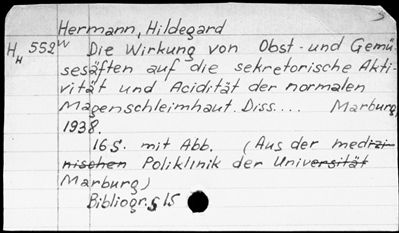 Hermann, Hildegard
H H 552 w Die Wirkung von Obst- und Gemü-
sesäften auf die sekretorische Akti-
vität und Acidität der normalen
Magenschleimhaut. Diss.... Marburg,
1938.
16S. mit Abb. (Aus der medizi-
nischen Poliklinik der Universität
Marburg)
Bibliogr. S 15